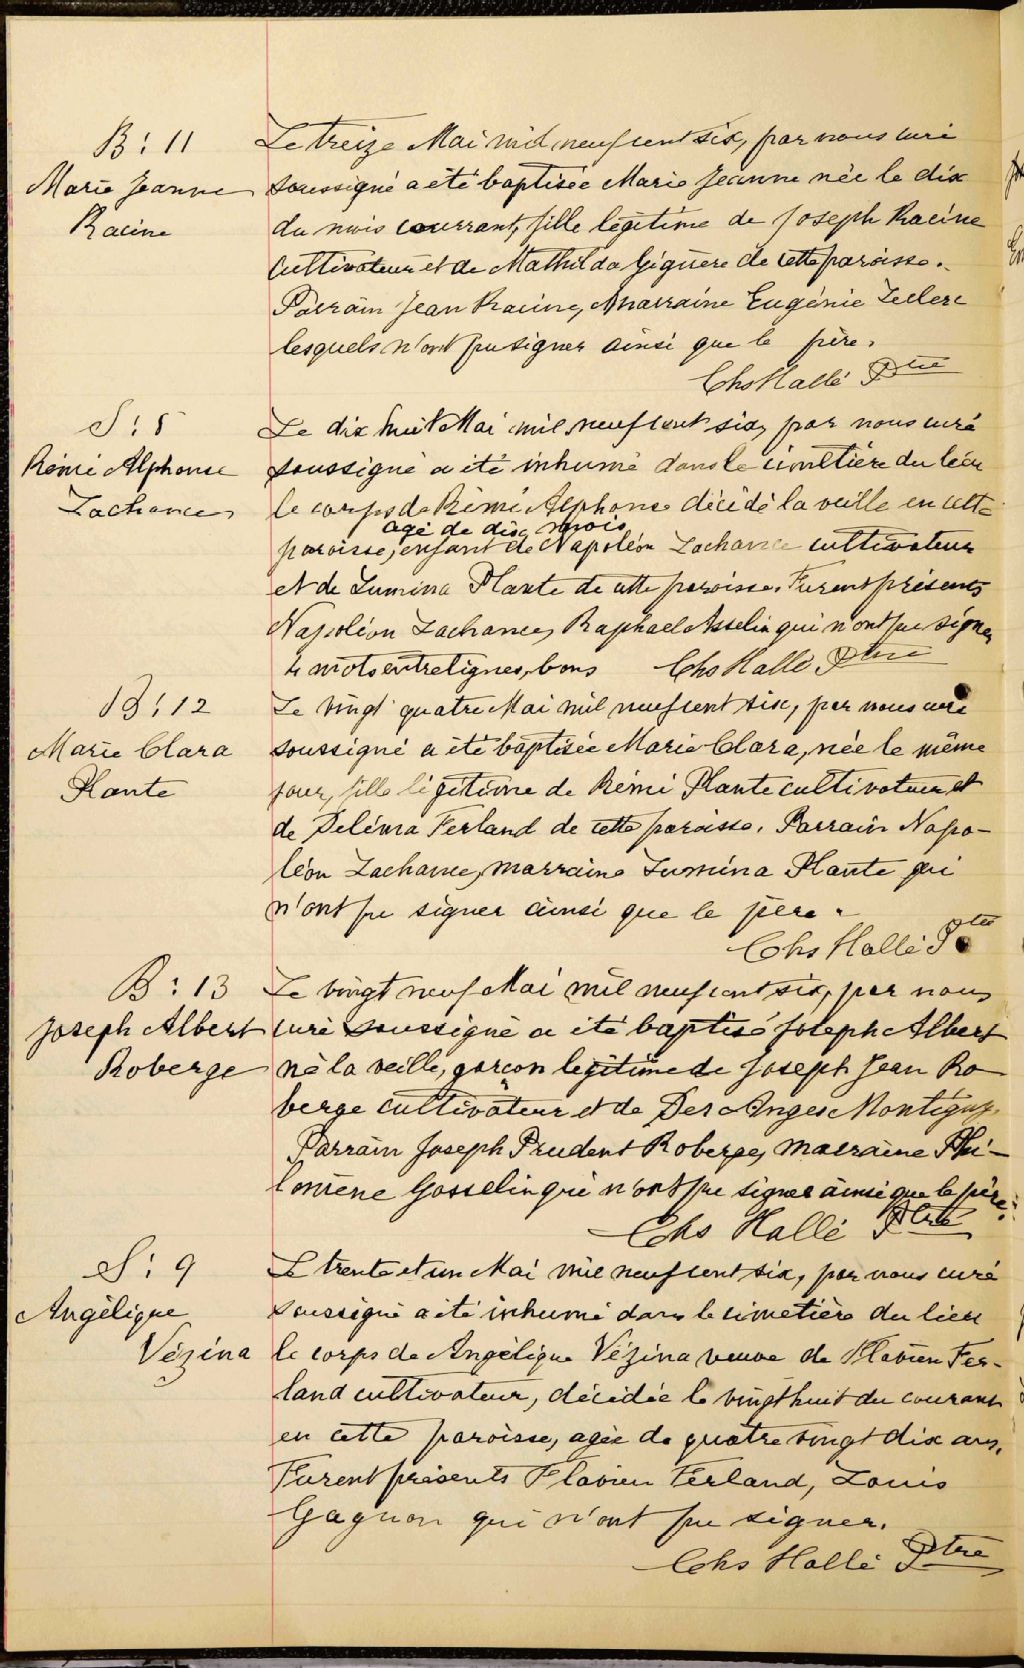 B: 11
Marie Jeanne
Racine
Le treize Mai mil neuf cent six, par nous curé
soussigné a été baptisée Marie Jeanne née le dix
du mois courrant, fille légitime de Joseph Racine
cultivateur et de Mathilda Giguère de cette paroisse.
Parrain Jean Racine, Marraine Eugénie Leclerc
lesquels n'ont pu signer ainsi que le père.
Chs Hallé Ptre
S: 8
Rémi Alphonse
Lachance
Le dix huit Mai mil neuf cent six, par nous curé
soussigné a été inhumé dans le cimetière du lieu
le corps de Rémi Alphonse décédé la veille en cette
agé de dix mois
paroisse, enfant de Napoléon Lachance cultivateur
et de Lumina Plante de cette paroisse. Furent présents
Napoléon Lachance, Raphael Asselin qui n'ont pu signer
4 mots entrelignes, bons Chs Hallé Ptre
B: 12
Marie Clara
Plante
Le vingt quatre Mai mil neuf cent six, par nous curé
soussigné a été baptisée Marie Clara, née le même
jour, fille légitime de Rémi Plante cultivateur et
de Deléma Ferland de cette paroisse. Parrain Napo-
léon Lachance, marraine Lumina Plante qui
n'ont pu signer ainsi que le père.
Chs Hallé Ptre
B: 13
Joseph Albert
Roberge
Le vingt neuf Mai mil neuf cent six, par nous
curé soussigné a été baptisé Joseph Albert
né la veille, garcon légitime de Joseph Jean Ro
berge cultivateur et de Des Anges Montigny.
Parrain Joseph Prudent Roberge, marraine Phi-
lomène Gosselin qui n'ont pu signer ainsi que le père.
Chs Hallé Ptre
S: 9
Angélique
Vézina
Le trente et un Mai mil neuf cent six, par nous curé
soussigné a été inhumé dans le cimetière du lieu
le corps de Angélique Vézina veuve de Flavien Fer-
land cultivateur, décédée le vingt huit du courant
en cette paroisse, agée de quatre vingt dix ans.
Furent présents Flavien Ferland, Louis
Gagnon qui n'ont pu signer.
Chs Hallé Ptre